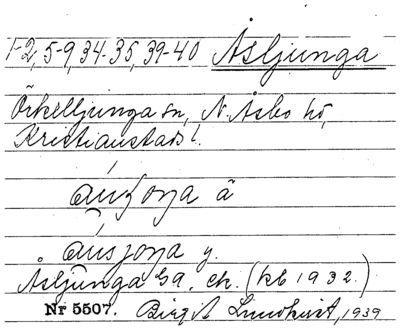 1-2, 5-9, 34-35, 39-40 Åsljunga
Örkelljunga sn, N. Åsbo hd,
Kristianstads l.
ä
y.
Åsljunga ga. ek. (kb 1932.)
Nr 5507. Birgit Lundkvist, 1939